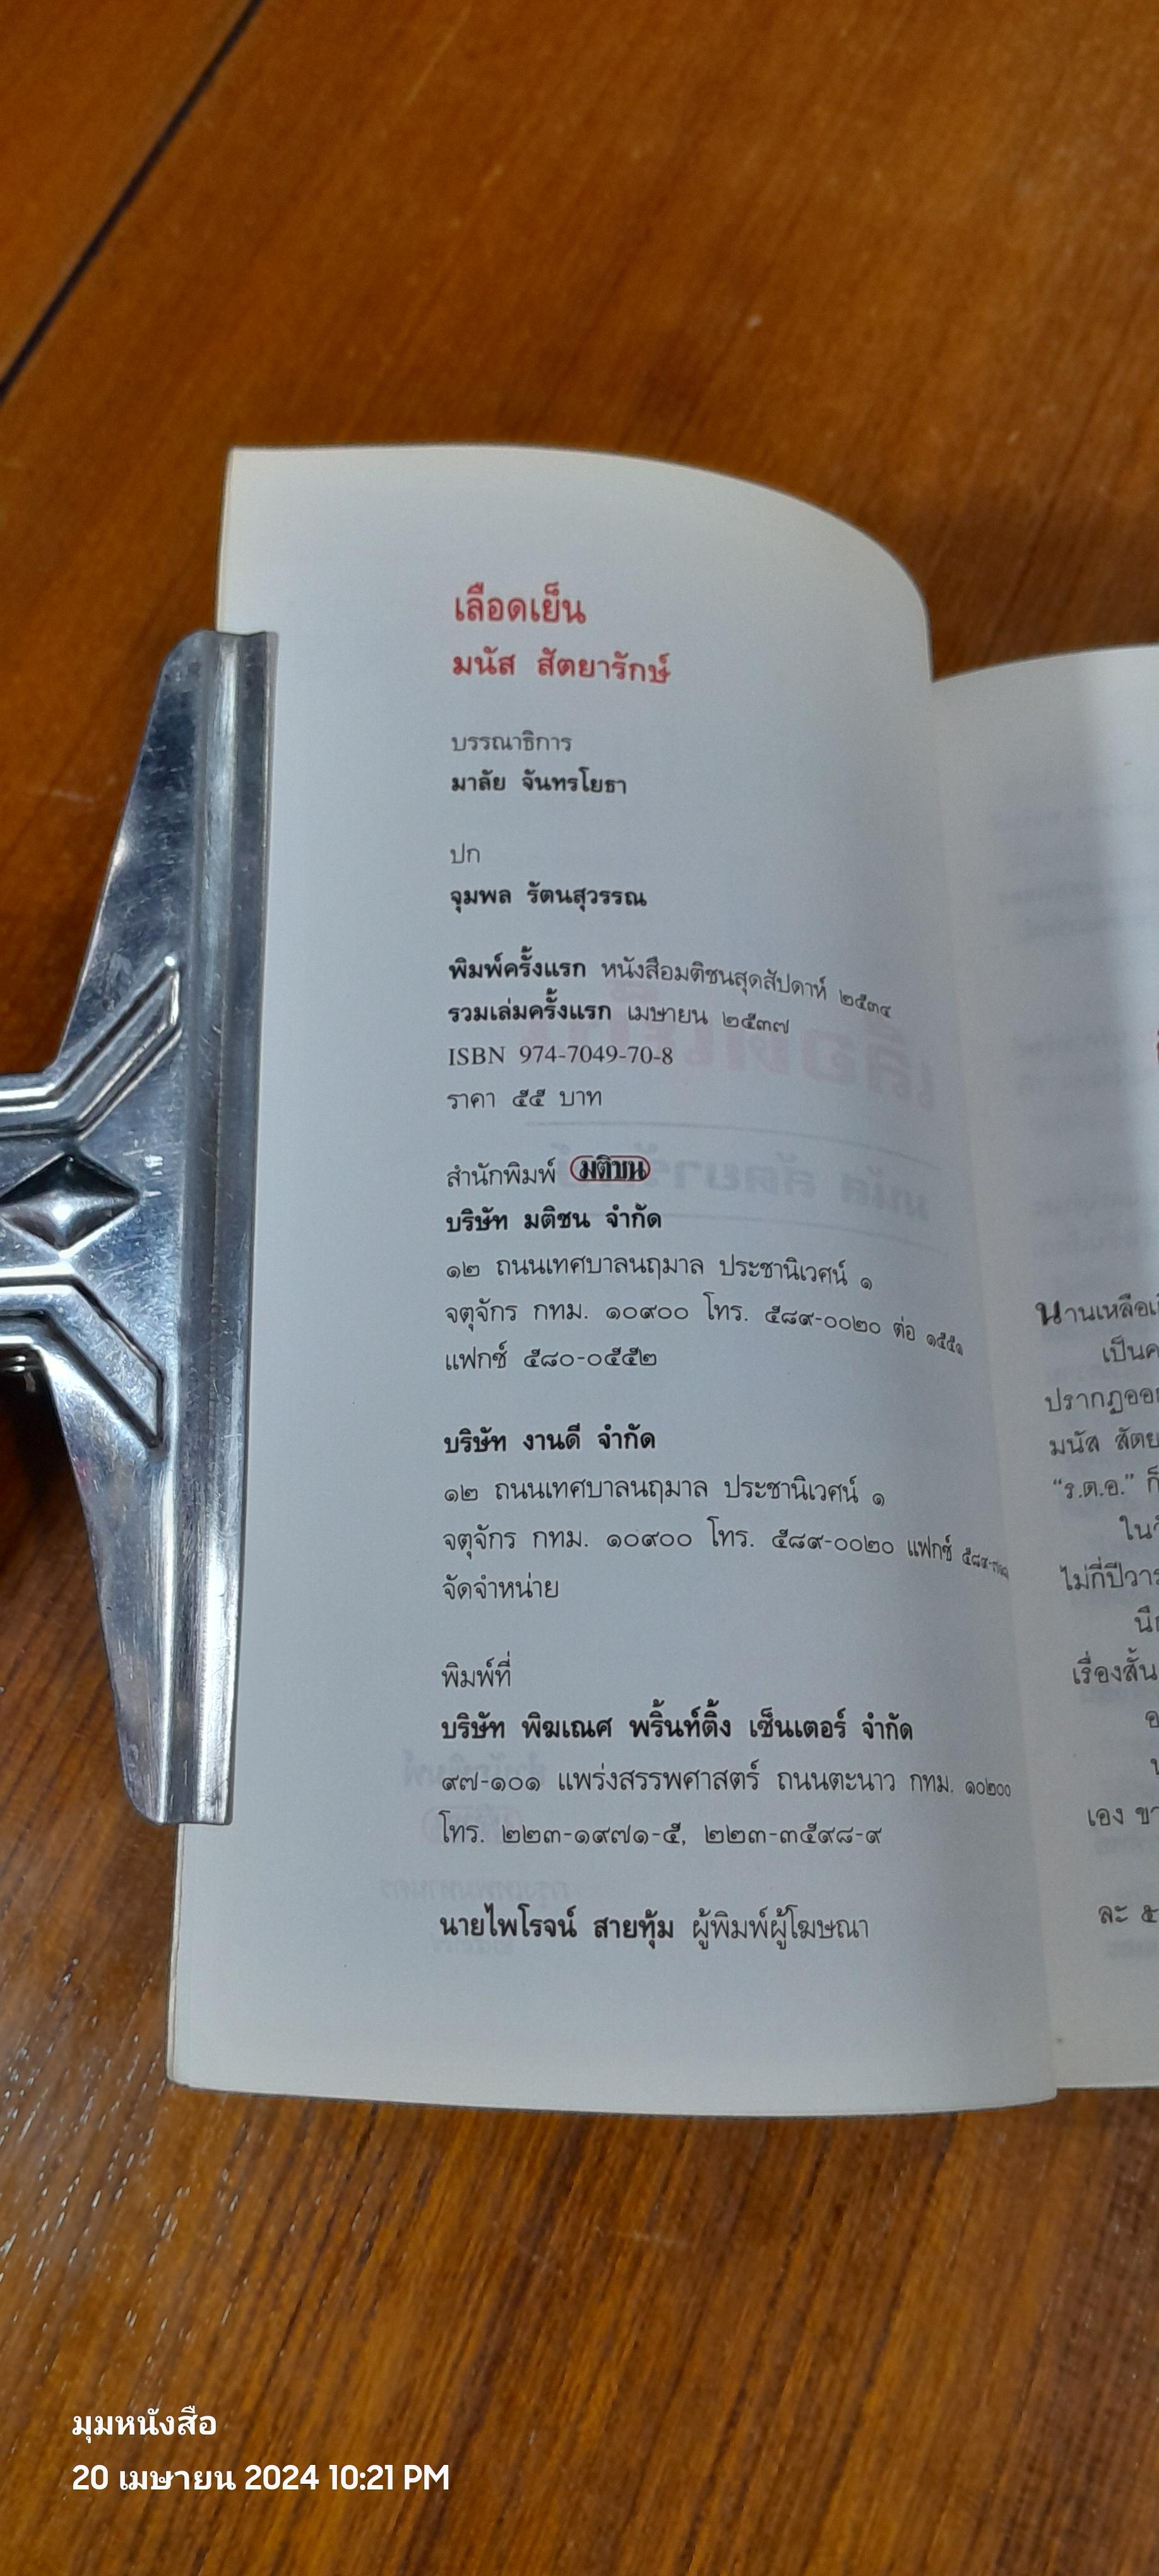 เลือดเย็น
มนัส สัตยารักษ์
บรรณาธิการ
มาลัย จันทรโยธา
ปก
จุมพล รัตนสุวรรณ
พิมพ์ครั้งแรก หนังสือมติชนสุดสัปดาห์ ๒๕๓๔
รวมเล่มครั้งแรก เมษายน ๒๕๓๗
ISBN 974-7049-70-8
ราคา ๕๕ บาท
สำนักพิมพ์ มติชน
บริษัท มติชน จำกัด
๑๒ ถนนเทศบาลนฤมาล ประชานิเวศน์ ๑
จตุจักร กทม. ๑๐๙๐๐ โทร. ๕๘๙-๐๐๒๐ ต่อ ๑๕๕๑
แฟกซ์ ๕๘๐-๐๕๕๒
บริษัท งานดี จำกัด
๑๒ ถนนเทศบาลนฤมาล ประชานิเวศน์ ๑
จตุจักร กทม. ๑๐๙๐๐ โทร. ๕๘๙-๐๐๒๐ แฟกซ์
จัดจำหน่าย
พิมพ์ที่
บริษัท พิฆเณศ พริ้นท์ติ้ง เซ็นเตอร์ จำกัด
๙๗-๑๐๑ แพร่งสรรพศาสตร์ ถนนตะนาว กทม. ๑๐๒๐๐
โทร. ๒๒๓-๑๙๗๑-๕, ๒๒๓-๓๕๙๘-๙
นายไพโรจน์ สายทุ้ม ผู้พิมพ์ผู้โฆษณา
นานเหลือ
เป็น
มนัส
"ร.ต.อ." ก็
ไม่กี่ปี
เรื่องสั้น
เอง
ละ ๕
มุมหนังสือ
20 เมษายน 2024 10:21 PM